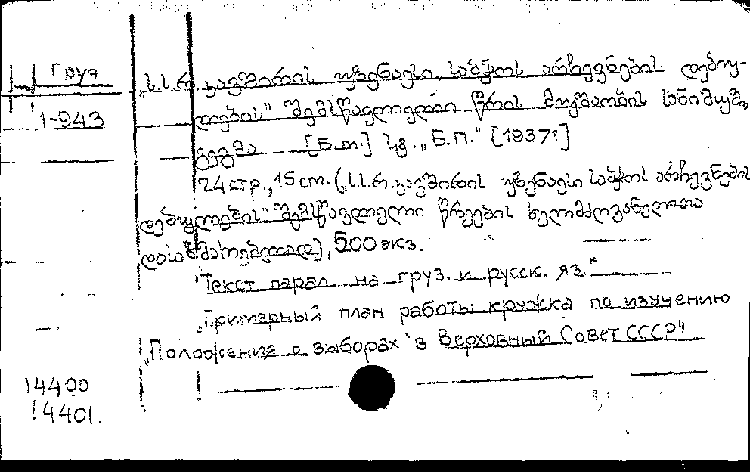 Груз
1-943
„ს.ს.რ. კავშირის უზენაესი საბჭოს არჩევნების დებუ-
ლების" შემსწავლელი წრის მუშაობის სანიმუშო
გეგმა [Б.м.] სგ. „Б.П." [1937?]
24 стр., 15 cm. (ს.ს.რ. კავშირის უზენაესი საბჭოს არჩევნების
დებულების" შემსწავლელი წრეების ხელმძღვანელთა
დასახმარებლად), 500 экз.
"Текст парал. на груз. и русск. яз."
„Примерный план работы кружка по изучению
„Положения о выборах в Верховный Совет СССР"
14400
14401.